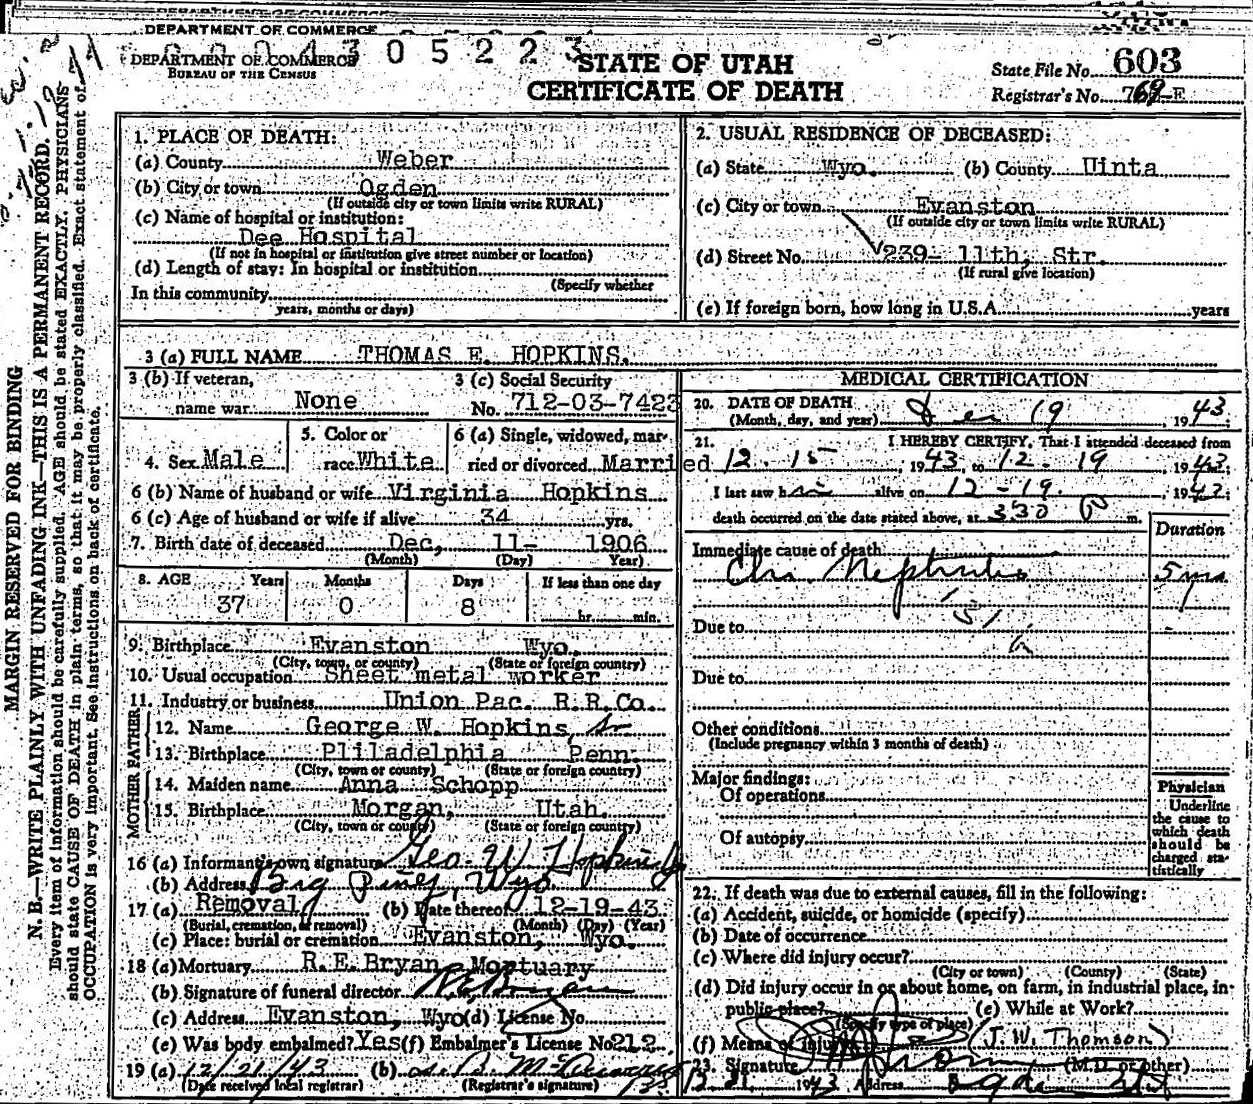 DEPARTMENT OF COMMERCE
DEPARTMENT OF COMMERCE
BUREAU OF THE CENSUS
0 0 0 4 3 0 5 2 2 3
STATE OF UTAH
CERTIFICATE OF DEATH
State File No. 603
Registrar's No.
MARGIN RESERVED FOR BINDING
N. B.—WRITE PLAINLY WITH UNFADING INK—THIS IS A PERMANENT RECORD.
Every item of information should be carefully supplied. AGE should be stated EXACTLY. PHYSICIANS
should state CAUSE OF DEATH in plain terms, so that it may be properly classified. Exact statement of
OCCUPATION is very important. See instructions on back of certificate.
1. PLACE OF DEATH:
(a) County Weber
(b) City or town Ogden
(If outside city or town limits write RURAL)
(c) Name of hospital or institution:
Dee Hospital
(If not in hospital or institution give street number or location)
(d) Length of stay: In hospital or institution
(Specify whether
In this community
years, months or days)
2. USUAL RESIDENCE OF DECEASED:
(a) State Wyo. (b) County Uinta
(c) City or town Evanston
(If outside city or town limits write RURAL)
(d) Street No. 239- 11th, Str.
(If rural give location)
(e) If foreign born, how long in U.S.A. years
3 (a) FULL NAME THOMAS E. HOPKINS.
3 (b) If veteran,
name war None
3 (c) Social Security
No. 712-03-7423
4. Sex Male
5. Color or
race White
6 (a) Single, widowed, mar-
ried or divorced Married
6 (b) Name of husband or wife Virginia Hopkins
6 (c) Age of husband or wife if alive 34 yrs.
7. Birth date of deceased Dec, 11- 1906
(Month) (Day) Year)
8. AGE Years Months Days If less than one day
37 0 8 hr. min.
9. Birthplace Evanston Wyo.
(City, town, or county) (State or foreign country)
10. Usual occupation Sheet metal worker
11. Industry or business Union Pac. R.R.Co.
FATHER
12. Name George W. Hopkins, Sr
13. Birthplace Pliladelphia Penn.
(City, town or county) (State or foreign country)
MOTHER
14. Maiden name Anna Schopp
15. Birthplace Morgan, Utah.
(City, town or county) (State or foreign country)
16 (a) Informant's own signature Geo. W Hopkins Jr
(b) Address Big Piney, Wyo.
17 (a) Removal (b) Date thereof 12-19-43
(Burial, cremation, or removal) (Month) (Day) (Year)
(c) Place: burial or cremation Evanston, Wyo.
18 (a) Mortuary R.E.Bryan Mortuary
(b) Signature of funeral director R E Bryan
(c) Address Evanston, Wyo (d) License No.
(e) Was body embalmed? Yes (f) Embalmer's License No 212
19 (a) 12/21/43 (b)
(Date received local registrar) (Registrar's signature)
MEDICAL CERTIFICATION
20. DATE OF DEATH
(Month, day, and year) Dec 19, 1943.
21. I HEREBY CERTIFY, That I attended deceased from
12. 15, 1943, to 12. 19, 1943.
I last saw him alive on 12-19, 1943.
death occurred on the date stated above, at 330 P m.
Duration
Immediate cause of death
Chr. Nephritis 5 yrs
Due to
Due to
Other conditions
(Include pregnancy within 3 months of death)
Major findings:
Of operations
Of autopsy
Physician
Underline
the cause to
which death
should be
charged sta-
tistically
22. If death was due to external causes, fill in the following:
(a) Accident, suicide, or homicide (specify)
(b) Date of occurrence
(c) Where did injury occur?
(City or town) (County) (State)
(d) Did injury occur in or about home, on farm, in industrial place, in
public place? (e) While at Work?
(Specify type of place)
(f) Means of injury (J.W. Thomson)
23. Signature (M.D. or other)
12 21 1943 Address Ogden Utah